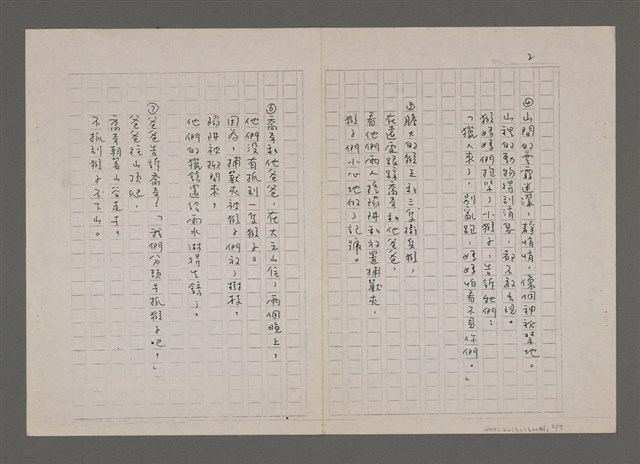 2
④山間的雲霧迷濛,靜悄悄,像個神祕禁地。
山裡的動物得到消息,都不敢出現。
猴媽媽們抱緊了小猴子,告訴牠們:
「獵人來了,別亂跑,媽媽怕看不見你們。」
⑤膽大的猴王和三隻衛兵猴,
在遠處跟蹤喬奇和他爸爸,
看他們兩人挖陷阱和放置捕獸夾,
猴子們小心地做了記號。
⑥喬奇和他爸爸,在大元山住了兩個晚上,
他們沒有抓到一隻猴子。
因為,捕獸夾被猴子們放了樹枝,
陷阱被拆開來,
他們的獵槍還給雨水淋得生銹了。
⑦爸爸告訴喬奇:「我們分頭去抓猴子吧,」
爸爸往山頂爬,
喬奇朝著山谷走去,
不抓到猴子不下山。